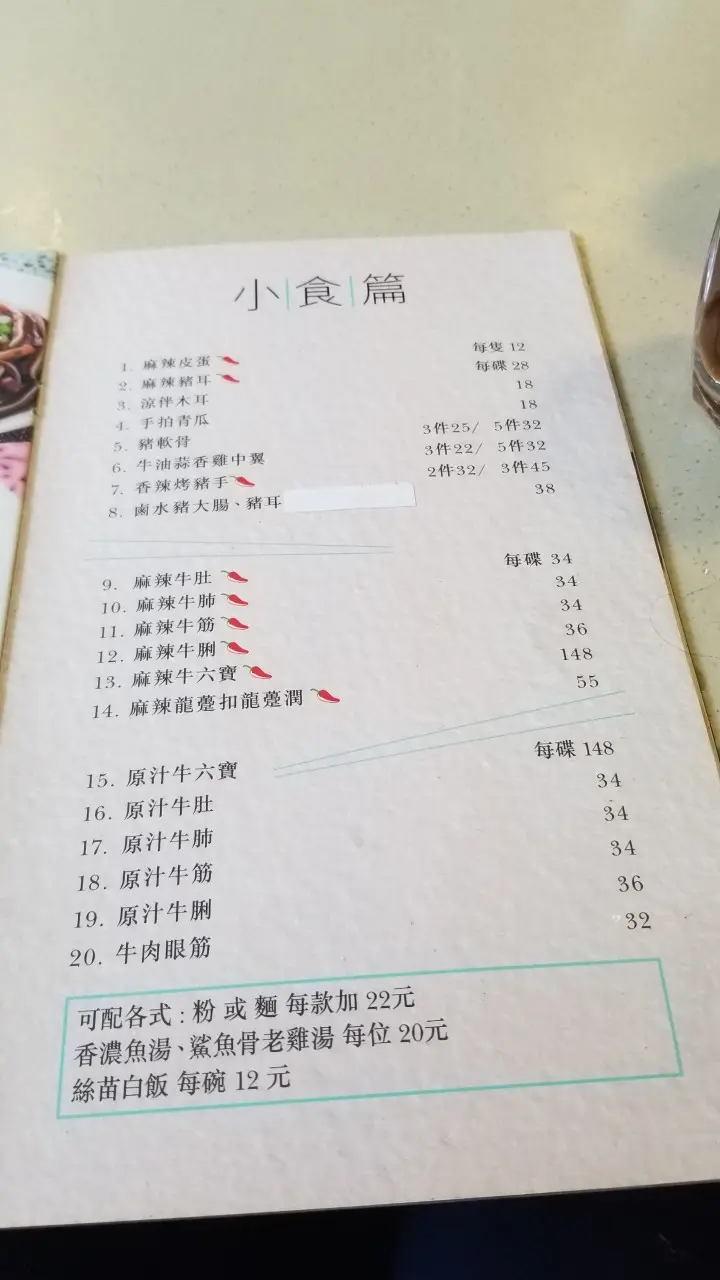 小食篇
1. 麻辣皮蛋 每隻 12
2. 麻辣豬耳 每碟 28
3. 涼伴木耳 18
4. 手拍青瓜 18
5. 豬軟骨 3件25/ 5件32
6. 牛油蒜香雞中翼 3件22/ 5件32
7. 香辣烤豬手 2件32/ 3件45
8. 鹵水豬大腸、豬耳 38
9. 麻辣牛肚 每碟 34
10. 麻辣牛肺 34
11. 麻辣牛筋 34
12. 麻辣牛脷 36
13. 麻辣牛六寶 148
14. 麻辣龍躉扣龍躉潤 55
15. 原汁牛六寶 每碟 148
16. 原汁牛肚 34
17. 原汁牛肺 34
18. 原汁牛筋 34
19. 原汁牛脷 36
20. 牛肉眼筋 32
可配各式 : 粉 或 麵 每款加 22元
香濃魚湯、鯊魚骨老雞湯 每位 20元
絲苗白飯 每碗 12 元